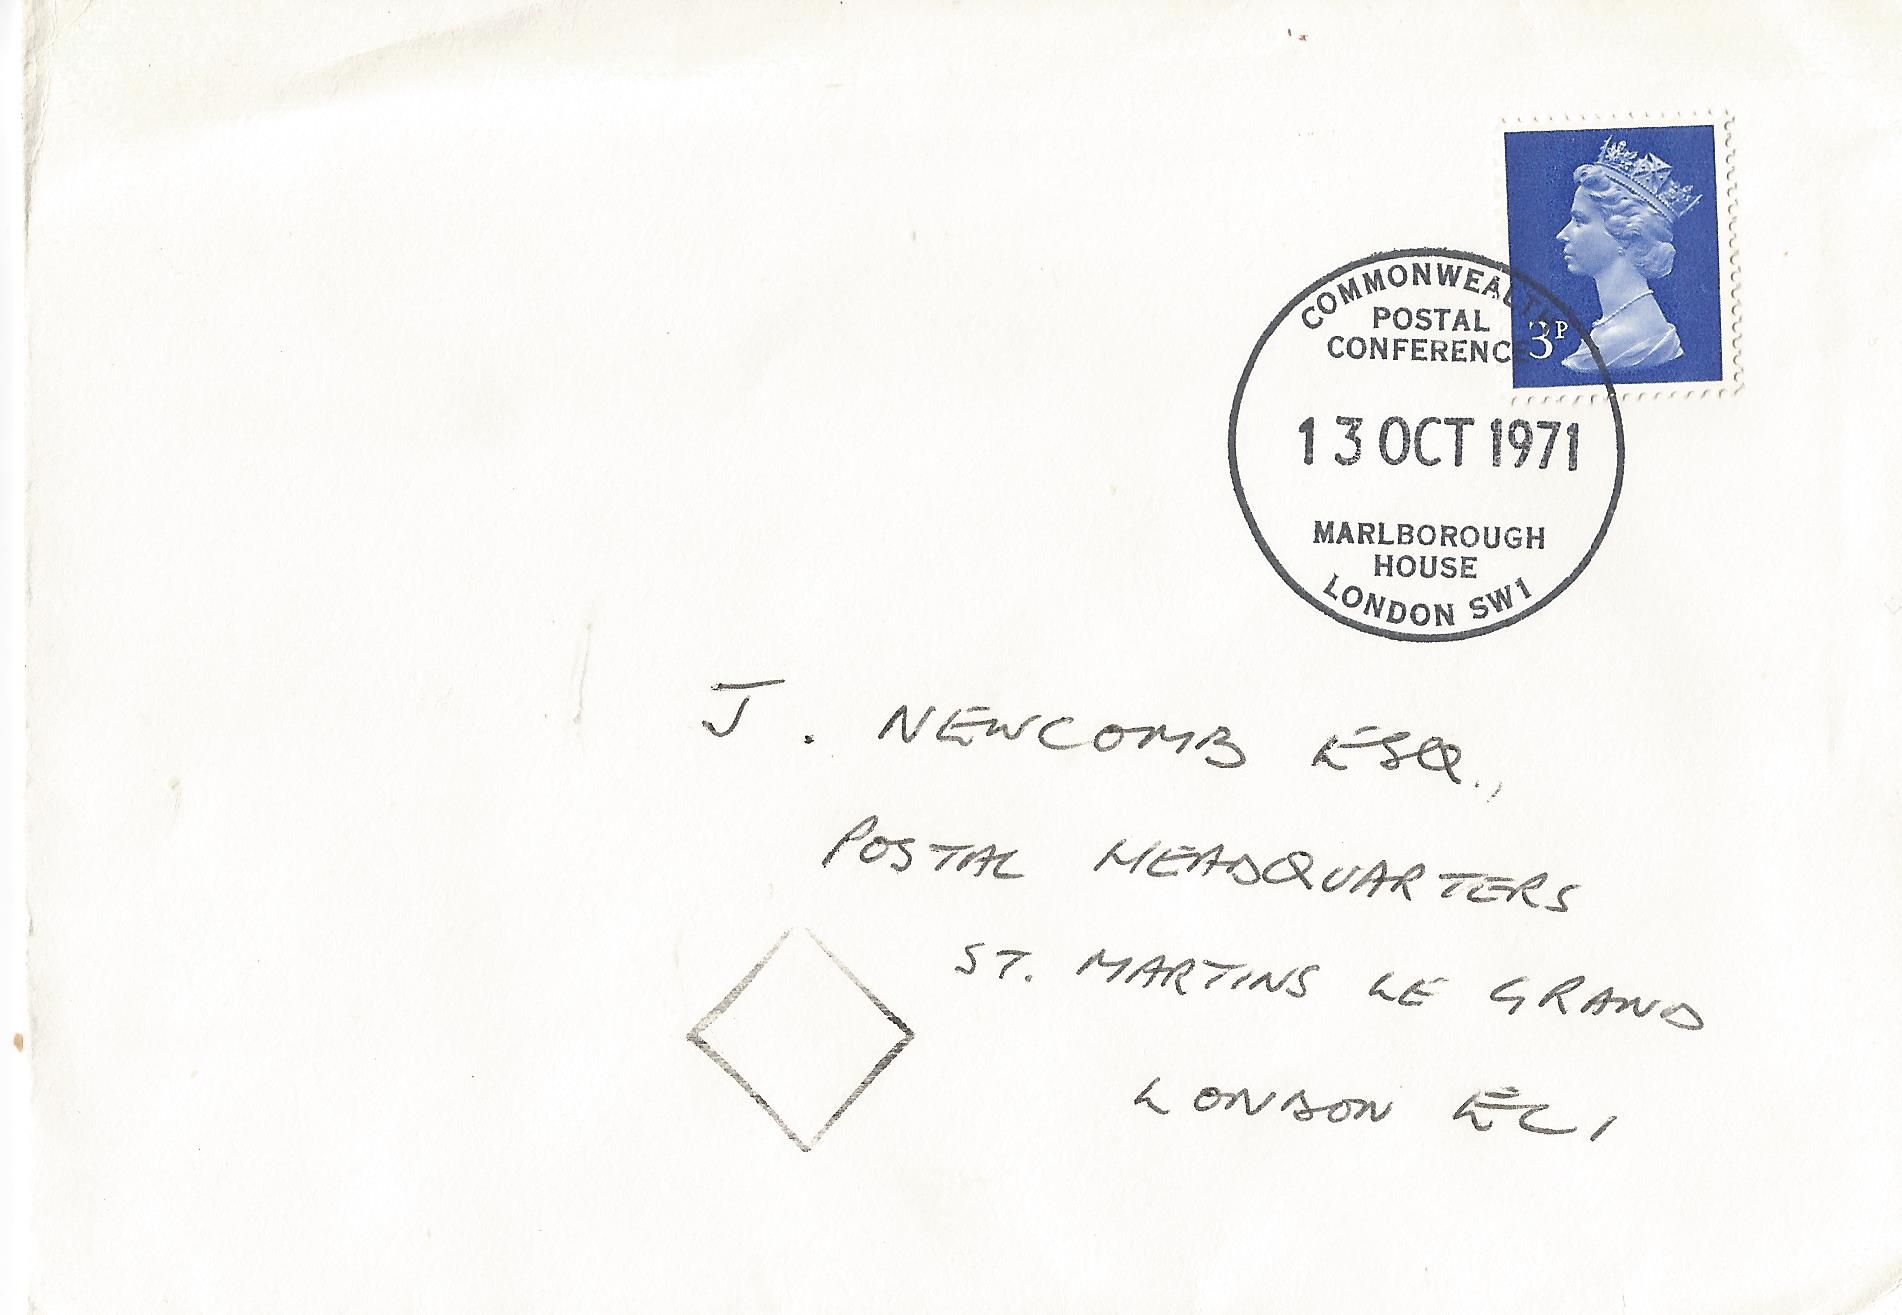 3P
COMMONWEALTH
POSTAL
CONFERENCE
13 OCT 1971
MARLBOROUGH
HOUSE
LONDON SW1
J. NEWCOMB ESQ.,
POSTAL HEADQUARTERS
ST. MARTINS LE GRAND
LONDON EC1